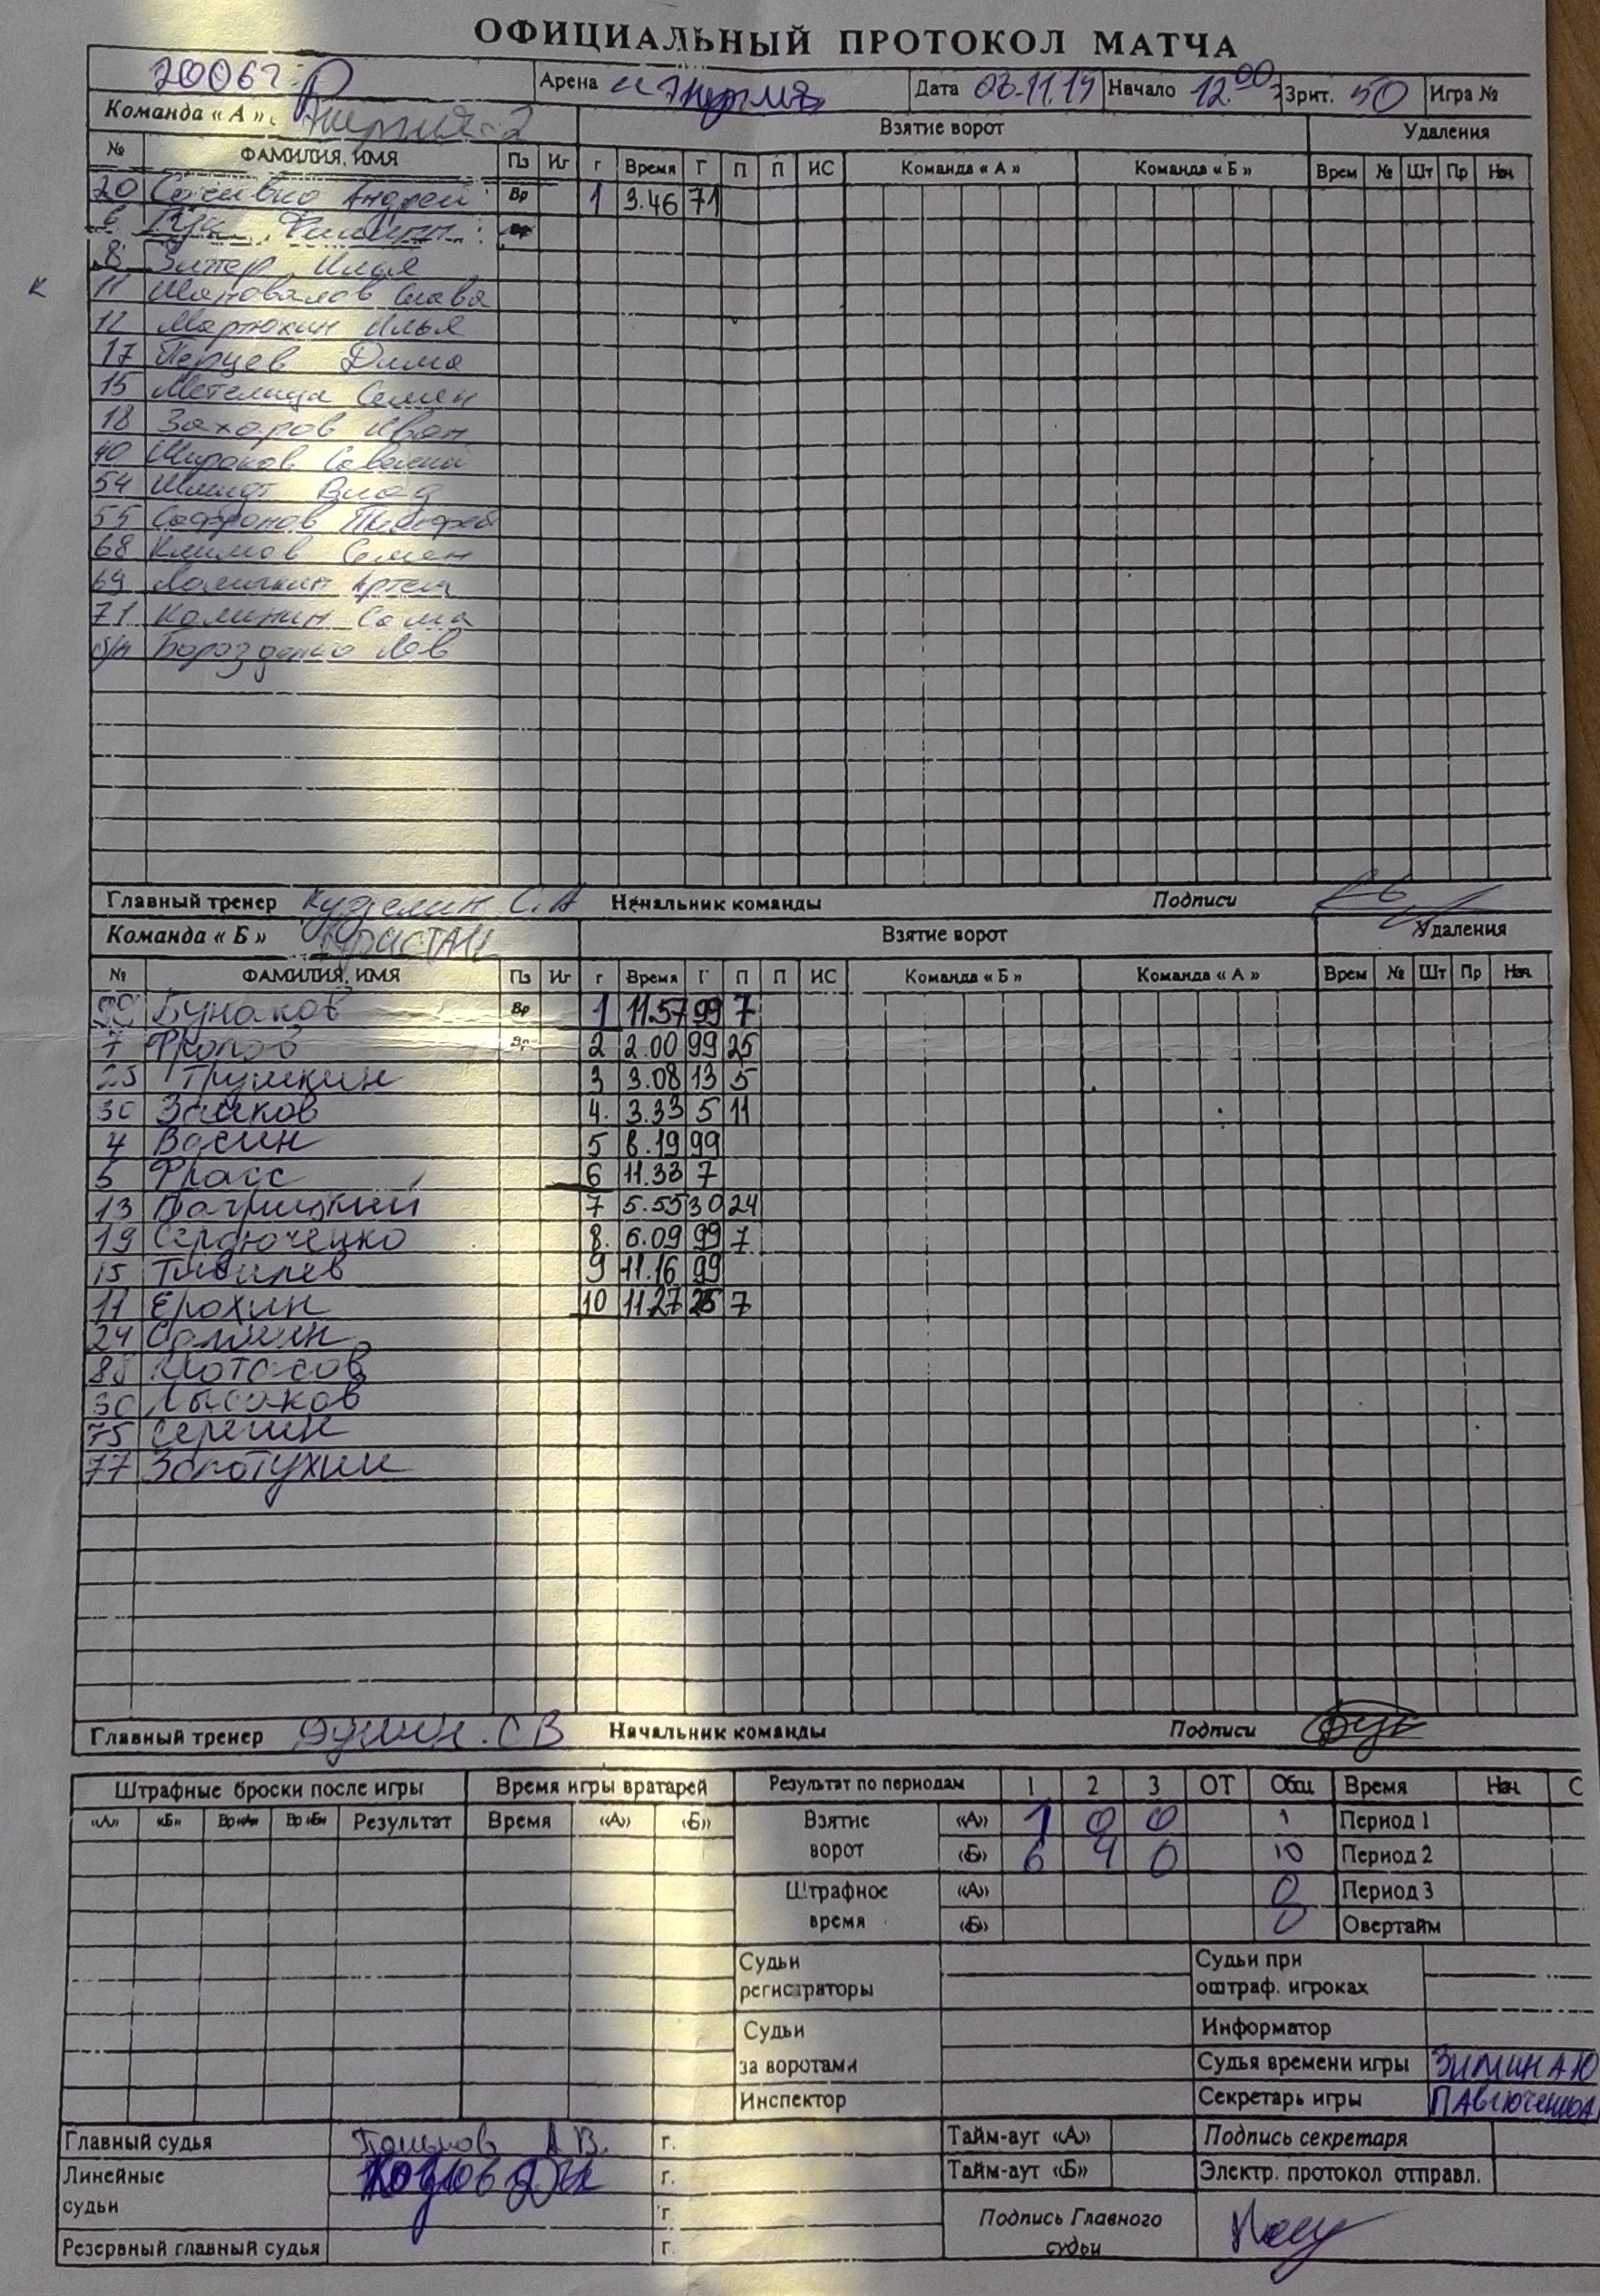 ОФИЦИАЛЬНЫЙ ПРОТОКОЛ МАТЧА
2006г. Арена Дата 03.11.19 Начало 12.00 Зрит. 50 Игра №
Команда «А» Энергия-2 Взятие ворот Удаления
№ ФАМИЛИЯ, ИМЯ Пз Иг г Время Г П П ИС Команда «А» Команда «Б» Врем № Шт Пр Нач
20 Андрей Вр 1 3.46 71
6 Филипп Вр
8 Илья
к 11 Шаповалов Слава
12 Мартюкин Илья
17 Перцев Дима
15 Метелица Семен
18 Захаров Иван
40 Широков Савелий
54 Шмидт Влад
55 Сафронов Тимофей
68 Климов Семен
69 Артем
71 Калинин Саша
б/н Борозденко Лев
Главный тренер С.А Начальник команды Подписи
Команда «Б» Кристалл Взятие ворот Удаления
№ ФАМИЛИЯ, ИМЯ Пз Иг г Время Г П П ИС Команда «Б» Команда «А» Врем № Шт Пр Нач
99 Бунаков Вр 1 11.57 99 7
7 Фролов Вр 2 2.00 99 25
25 Трушкин 3 3.08 13 5
30 Зайков 4. 3.33 5 11
4 Васин 5 8.19 99
5 Фласс 6 11.33 7
13 Патрицкий 7 5.55 30 24
19 Сердюченко 8. 6.09 99 7
15 Тивилев 9 11.16 99
11 Ерохин 10 11.27 25 7
24 Салмин
Потасов
Лысаков
75 Сергин
77 Золотухин
Главный тренер С В Начальник команды Подписи
Штрафные броски после игры Время игры вратарей Результат по периодам 1 2 3 ОТ Общ Время Нач С
«А» «Б» Вр«А» Вр«Б» Результат Время «А» «Б» Взятие ворот «А» 1 0 0 1 Период 1
«Б» 6 4 0 10 Период 2
Штрафное время «А» 0 Период 3
«Б» 0 Овертайм
Судьи регистраторы Судьи при оштраф. игроках
Судьи за воротами Информатор
Судья времени игры ЗИМИН А Ю
Инспектор Секретарь игры
Главный судья А В. г. Тайм-аут «А» Подпись секретаря
Линейные судьи Козлов г. Тайм-аут «Б» Электр. протокол отправл.
г. Подпись Главного судьи
Резервный главный судья г.